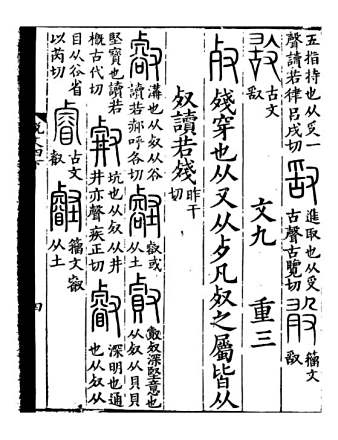 五指持也从𠬪一
聲讀若律呂戌切
進取也从𠬪
古聲古覽切
籒文
𠭖
古文
𠭖
文九 重三
殘穿也从又从歺凡𣦻之屬皆从
𣦻讀若殘
昨干
切
溝也从𣦻从谷
讀若郝呼各切
㕡或
从土
𣦻深堅意也
从𣦻从貝貝
堅寶也讀若
概古代切
坑也从𣦻从井
井亦聲疾正切
深明也通
也从𣦻从
目从谷省
以芮切
古文
叡
籒文叡
从土
四